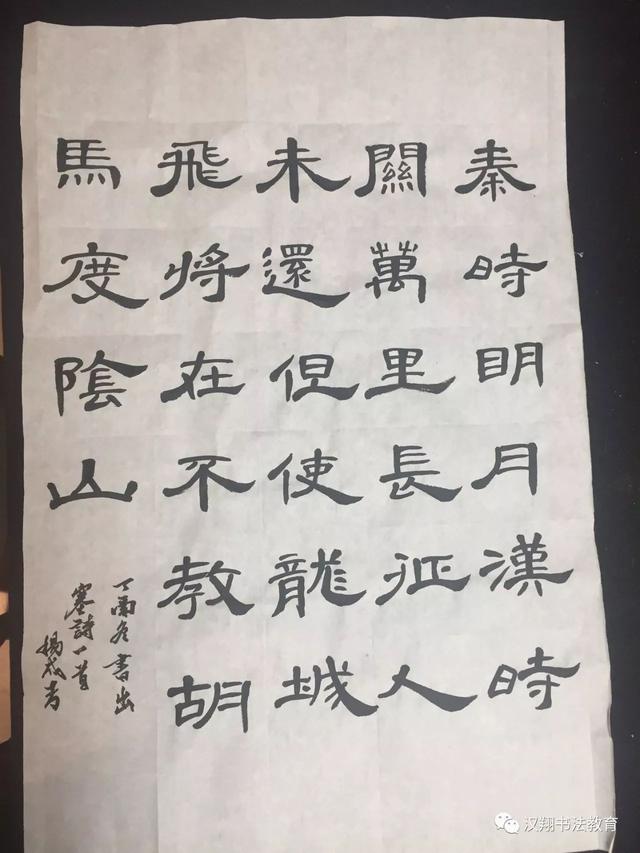 秦時明月漢時
關萬里長征人
未還但使龍城
飛將在不教胡
馬度陰山
丁酉冬書出
塞詩一首
楊成
汉翔书法教育